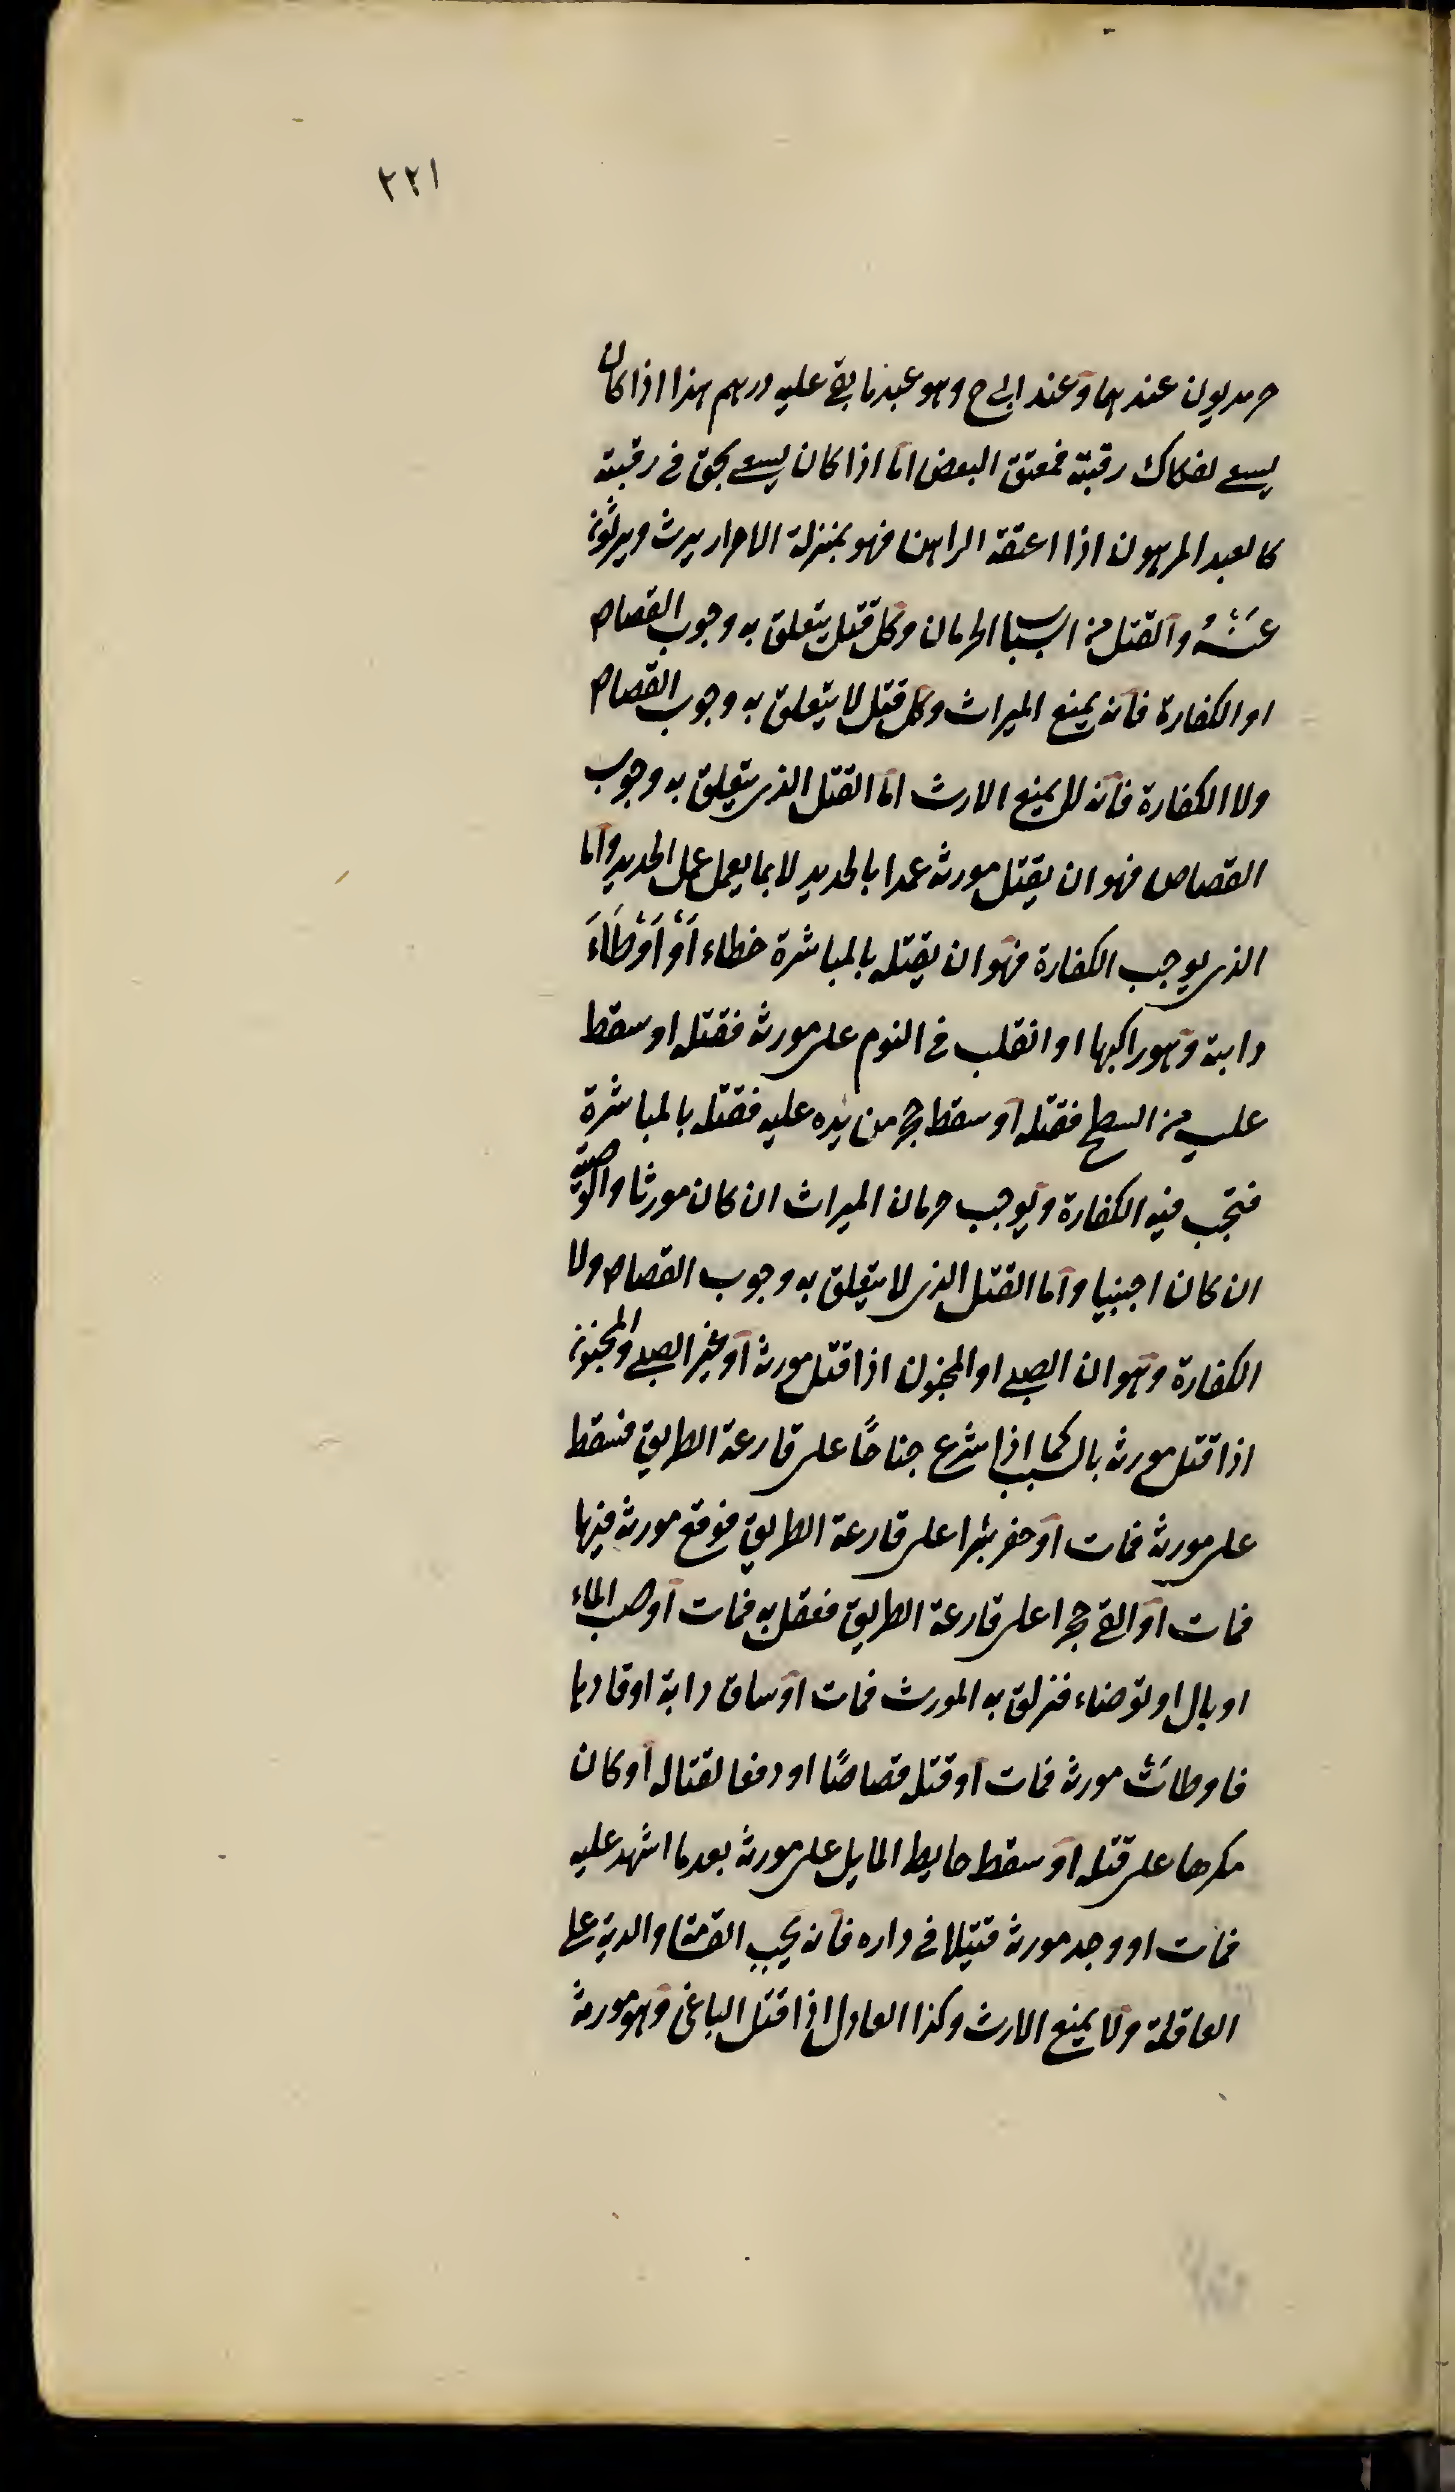 ٢٢١
حر مديون عندهما وعند ابي ح وهو عبد ما بقي عليه درهم هذا اذا كان
يسعى لفكاك رقبته فمعتق البعض اما اذا كان يسعى بحق في رقبته
كالعبد المرهون اذا اعتقه الراهن فهو بمنزلة الاحرار يرث ويرثون
عنه والقتل من اسباب الحرمان وكل قتل يتعلق به وجوب القصاص
او الكفارة فانه يمنع الميراث وكل قتل لا يتعلق به وجوب القصاص
ولا الكفارة فانه لا يمنع الارث اما القتل الذي يتعلق به وجوب
القصاص فهو ان يقتل مورثه عمدا بالحديد لا بما يعمل عمل الحديد واما
الذي يوجب الكفارة فهو ان يقتله بالمباشرة خطاء أو أوطاء
دابته وهو راكبها او انقلب في النوم على مورثه فقتله او سقط
عليه من السطح فقتله او سقط حجر من يده عليه فقتله بالمباشرة
فتجب فيه الكفارة ويوجب حرمان الميراث ان كان مورثا والوصية
ان كان اجنبيا واما القتل الذي لا يتعلق به وجوب القصاص ولا
الكفارة وهو ان الصبي او المجنون اذا قتل مورثه او غير الصبي والمجنون
اذا قتل مورثه بالسبب كما اذا شرع جناحًا على قارعة الطريق فسقط
على مورثه فمات او حفر بئرا على قارعة الطريق فوقع مورثه فيها
فمات او القى حجرا على قارعة الطريق فعقل به فمات او صب الماء
او بال او توضاء فزلق به المورث فمات او ساق دابة او قادها
فاوطائت مورثه فمات او قتل قصاصًا او دفعا لقتاله او كان
مكرها على قتله او سقط حايط المايل على مورثه بعد ما اشهد عليه
فمات او وجد مورثه قتيلا في داره فانه يجب القسامة والدية على
العاقلة ولا يمنع الارث وكذا العادل اذا قتل الباغي وهو مورثه